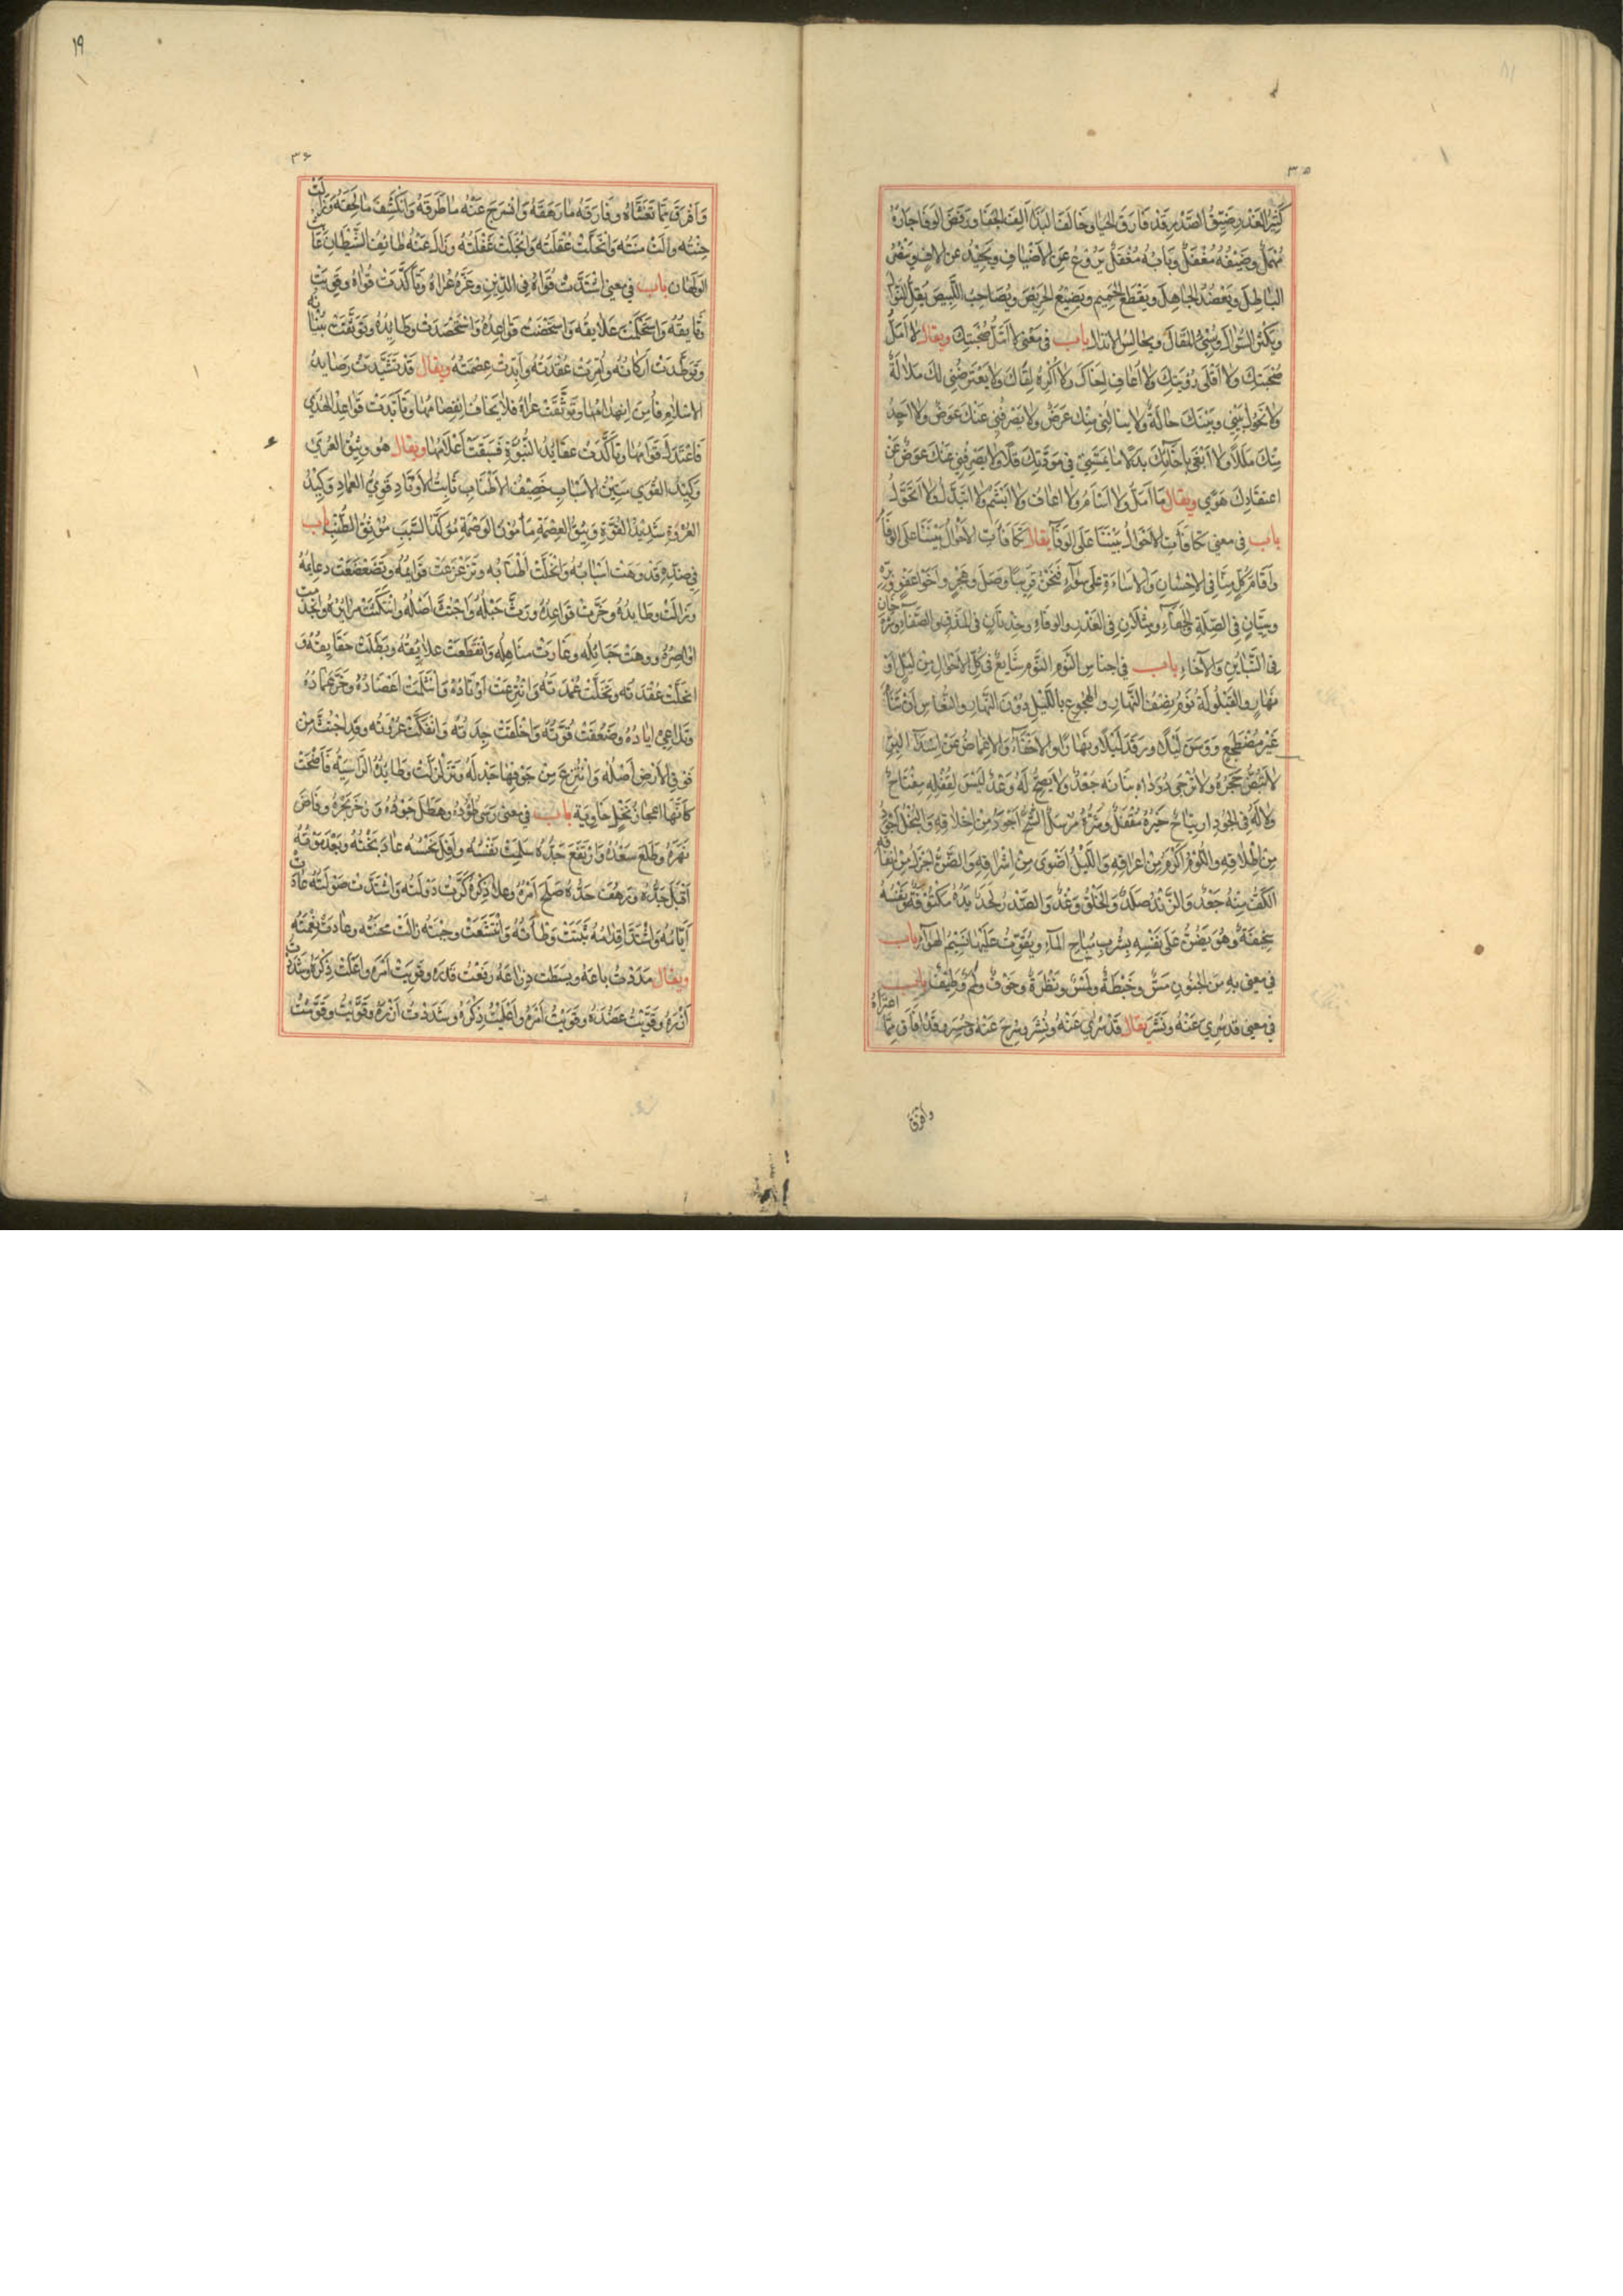 ٣٥
كَثِيرُ الغَدْرِ ضَيِّقُ الصَّدْرِ قَدْ فَارَقَ الحَيَا وحَالَفَ البَذَا أَلِفَ الجَفَا ورَفَضَ الوَفَا جَارُهُ
مُهْمَلٌ وضَيْفُهُ مُغْفَلٌ وبَابُهُ مُقْفَلٌ يَرُوغُ عَنِ الأَضْيَافِ ويَحِيْدُ عن
البَاطِلَ ويَعْضُدُ الجَاهِلَ ويَقْطَعُ الحَمِيمَ ويُضِيْعُ الحَرِيْمَ ويُصَاحِبُ يُقِلُّ النَّوَالَ
ويُكْثِرُ السُّؤَالَ ويُسِيْءُ المَقَالَ ويُجَالِسُ الأَنْذَالَ باب في مَعْنَى لا أَمَلُّ صُحْبَتَكَ ويقال لا أَمَلُّ
صُحْبَتَكَ ولا أَقْلَى رُؤْيَتَكَ ولا أَعَافُ ولا أَكْرَهُ لِقَاكَ ولا يَعْتَرِضُنِي لَكَ مَلَالَةٌ
ولا تَحُوْلُ بَيْنِي وبَيْنَكَ حَالَةٌ ولا مِنْكَ عَرَضٌ ولا يَصْرِفُنِي عَنْكَ عِوَضٌ ولا أَجِدُ
مِنْكَ مَلَلًا ولا أَبْغِي بِإِخَائِكَ بَدَلًا مَا يَمَسُّنِي في مَوَدَّتِكَ قِلًا ولا يَصْرِفُنِي عَنْكَ عِوَضٌ عَنْ
اعتقادِكَ هَوًي ويقال مَا أَمَلُّ ولا أَسْأَمُ ولا أَعَافُ ولا أَبْشَمُ ولا أَتَبَدَّلُ ولا أَتَحَوَّلُ
باب في معنى تَكَافَأَتِ الأَحْوَالُ بَيْنَنَا عَلَى الوَفَا يقال تَكَافَأَتِ الأَحْوَالُ بَيْنَنَا عَلَى الوَفَاءِ
وأَقَامَ كُلٌّ مِنَّا في الإِحْسَانِ والإِسَاءَةِ عَلَى سَوَاءٍ فَنَحْنُ وَصْلٍ وهَجْرٍ وأَخَوَا
وسِيَّانِ في الصِّلَةِ والجَفَاءِ ومِثْلَانِ في الغَدْرِ والوَفَاءِ وخِدْنَانِ في المَذْقِ والصَّفَاءِ
في التَّبَايُنِ والإِخَاءِ باب في اجناس النَّوم النَّوم شَايعٌ في كُلِّ الأَحْوَالِ مِنْ لَيْلٍ أَوْ
نَهَارٍ والقَيْلُولَةُ نَوْمُ نِصْفِ النَّهَارِ والهُجُوعُ باللَّيْلِ دُوْنَ النَّهَارِ والنُّعَاسُ أَنْ
غَيْرَ مُضْطَجِعٍ ووَسَنَ لَيْلًا ورَقَدَ لَيْلًا ونَهَارًا والإِغْفَاءُ والإِغْمَاضُ
لا تَبُضُّ حَجَرُهُ ولا جَعْدٌ ولا يَصِحُّ لَهُ وَعْدٌ لَيْسَ لِقُفْلِهِ مِفْتَاحٌ
ولا لَهُ في الجُودِ ارْتِيَاحٌ خَيْرُهُ مُقْفَلٌ وشَرُّهُ مُرْسَلٌ الشُّحُّ أَجْوَدُ مِنْ اخلاقِهِ والبُخْلُ
مِنْ اطلاقِهِ واللُّؤْمُ أَكْرَمُ مِنْ اعراقِهِ واللَّيْلُ أَضْوَى مِنْ اشراقِهِ
الكَفُّ مِنْهُ جَعْدٌ والزَّنْدُ صَلْدٌ والخُلُقُ وَغْدٌ والصَّدْرُ يَدُهُ مَكْتُوْفَةٌ ونَفْسُهُ
وهُوَ يَضُنُّ عَلَى نَفْسِهِ بِشُرْبِ مُبَاحِ المَاءِ عَلَيْهَا نَسِيْمَ الهَوَآءِ باب
في معنى بِهِ مِنَ الجُنُونِ مَسٌّ وخَبْطَةٌ ولَمْسٌ ونَظْرَةٌ وخَوْفٌ ولَمَمٌ وطَيْفٌ باب
في معنى قد سُرِيَ عَنْهُ ونُشِرَ يقال قَدْ سُرِيَ عَنْهُ ونُشِرَ وسُرِحَ عَنْهُ وحُسِرَ وقَدْ أَفَاقَ مِمَّا اعْتَرَاهُ
وافرق
١٩
٣٦
وَأَفْرَقَ مِمَّا تَغَشَّاهُ وفَارَقَهُ مَا رَهَقَهُ وَانْسَرَحَ عَنْهُ مَا طَرَقَهُ وَانْكَشَفَ مَا لَحِقَهُ وَزَالَتْ
جِنَّتُهُ وَانْحَلَّتْ عُقْلَتُهُ وَانْجَلَتْ غَفْلَتُهُ وزَالَ عَنْهُ طَائِفُ الشَّيْطَانِ
باب في معنى اشْتَدَّتْ قُوَاهُ فِي الدِّيْنِ وعُرَاهُ وَتَأَكَّدَتْ قُوَاهُ وقَوِيَتْ
وَثَايِقُهُ وَاسْتَحْكَمَتْ عَلَايِقُهُ وَاسْتَحْصَفَتْ قَوَاعِدُهُ وَاسْتَحْصَدَتْ وطَايِدُهُ
وتَوَطَّدَتْ أَرْكَانُهُ وأُمِرَّتْ عُقْدَتُهُ وأُيِّدَتْ عِصْمَتُهُ ويقال قَدْ تَشَيَّدَتْ
الإِسْلَامِ فَأُمِنَ انهدامُهَا وتَوَثَّقَتْ عُرَاهُ فَلَا يُخَافُ انْفِصَامُهَا وتَأَيَّدَتْ قَوَاعِدُ الهُدَي
فَاعْتَدَلَ قَوَامُهَا وتَأَكَّدَتْ عَقَايِدُ النُّبُوَّةِ فَسَبَقَتْ أَعْلَامُهَا ويقال هُو وَثِيْقُ العُرَي
وَكِيْدُ القُوَي مَتِيْنُ الأَسْبَابِ حَصِيْفُ الأَطْنَابِ ثَابِتُ الأَوْتَادِ قَوِيُّ العِمَادِ وَكِيْدُ
العُرْوَةِ شَدِيْدُ القُوَّةِ وَثِيْقُ العِصْمَةِ مَأْمُوْنُ الوَصْمَةِ مُؤَكَّدُ السَّبَبِ مُوْثَقُ الطُّنُبِ باب
فِي ضِدِّهِ قَدْ وَهَتْ أَسْبَابُهُ وَانْحَلَّتْ أَطْنَابُهُ وتَزَعْزَعَتْ قَوَايِمُهُ وتَضَعْضَعَتْ دعايِمُهُ
وزَالَتْ وطَايِدُهُ وخَرَّتْ قَوَاعِدُهُ ورَثَّ حَبْلُهُ وَاجْتُثَّ أَصْلُهُ وانْتَكَثَتْ مَرَائِرُهُ وانْجَذَمَتْ
أَوَاصِرُهُ ووَهَتْ حَبَائِلُهُ وغَارَتْ مَنَاهِلُهُ وَانْقَطَعَتْ علايِقُهُ وبَطَلَتْ حَقَايِقُهُ و
انحَلَّتْ عُقْدَتُهُ وتَخَلَّتْ عُمْدَتُهُ وَانْتُزِعَتْ أَوْتَادُهُ وَانْثَلَمَتْ أَعْضَادُهُ وخَرَّ عِمَادُهُ
وتَدَاعِي وضَعُفَتْ قُوَّتُهُ وَاخْلَقَتْ جِدَّتُهُ وَانْفَكَّتْ عُرْوَتُهُ وقَدِ اجْتُثَّ مِنْ
فَوْقِ الأَرْضِ أَصْلُهُ وَانْتُزِعَ مِنْ جَوْفِهَا وتَزَلْزَلَتْ وطَايِدُهُ الرَّاسِيَةُ فَأَصْبَحَتْ
كَأَنَّهَا اعجازُ نَخْلٍ خَاوِيَةٍ باب في معنى وهَطَلَ جَوْدُهُ وزَخَرَ بَحْرُهُ وفَاضَ
نَهْرُهُ وطَلَعَ سَعْدُهُ وَارْتَفَعَ جَدُّهُ سَلِمَتْ نَفْسُهُ وأَفَلَ نَحْسُهُ عَادَ بَخْتُهُ
أَقْبَلَ جَدُّهُ ورَهُفَ حَدُّهُ صَلَحَ أَمْرُهُ وعَلَا ذِكْرُهُ كَرَّتْ دَوْلَتُهُ وَاشْتَدَّتْ صَوْلَتُهُ عَادَتْ
أَيَّامُهُ وَاشْتَدَّ أَقدَامُهُ ثَبَتَتْ وَطْأَتُهُ زالَتْ مِحْنَتُهُ وعَادَتْ نِعْمَتُهُ
ويقال مَدَدْتُ بَاعَهُ وبَسَطْتُ ذِرَاعَهُ رَفَعْتُ قَدْرَهُ وقَوَّيْتُ أَمْرَهُ وأَعْلَيْتُ ذِكْرَهُ وشَدَدْتُ
أَزْرَهُ وقَوَّيْتُ عَضُدَهُ وقَوَّيْتُ أَمْرَهُ وأَعْلَيْتُ ذِكْرَهُ وشَدَدْتُ أَزْرَهُ